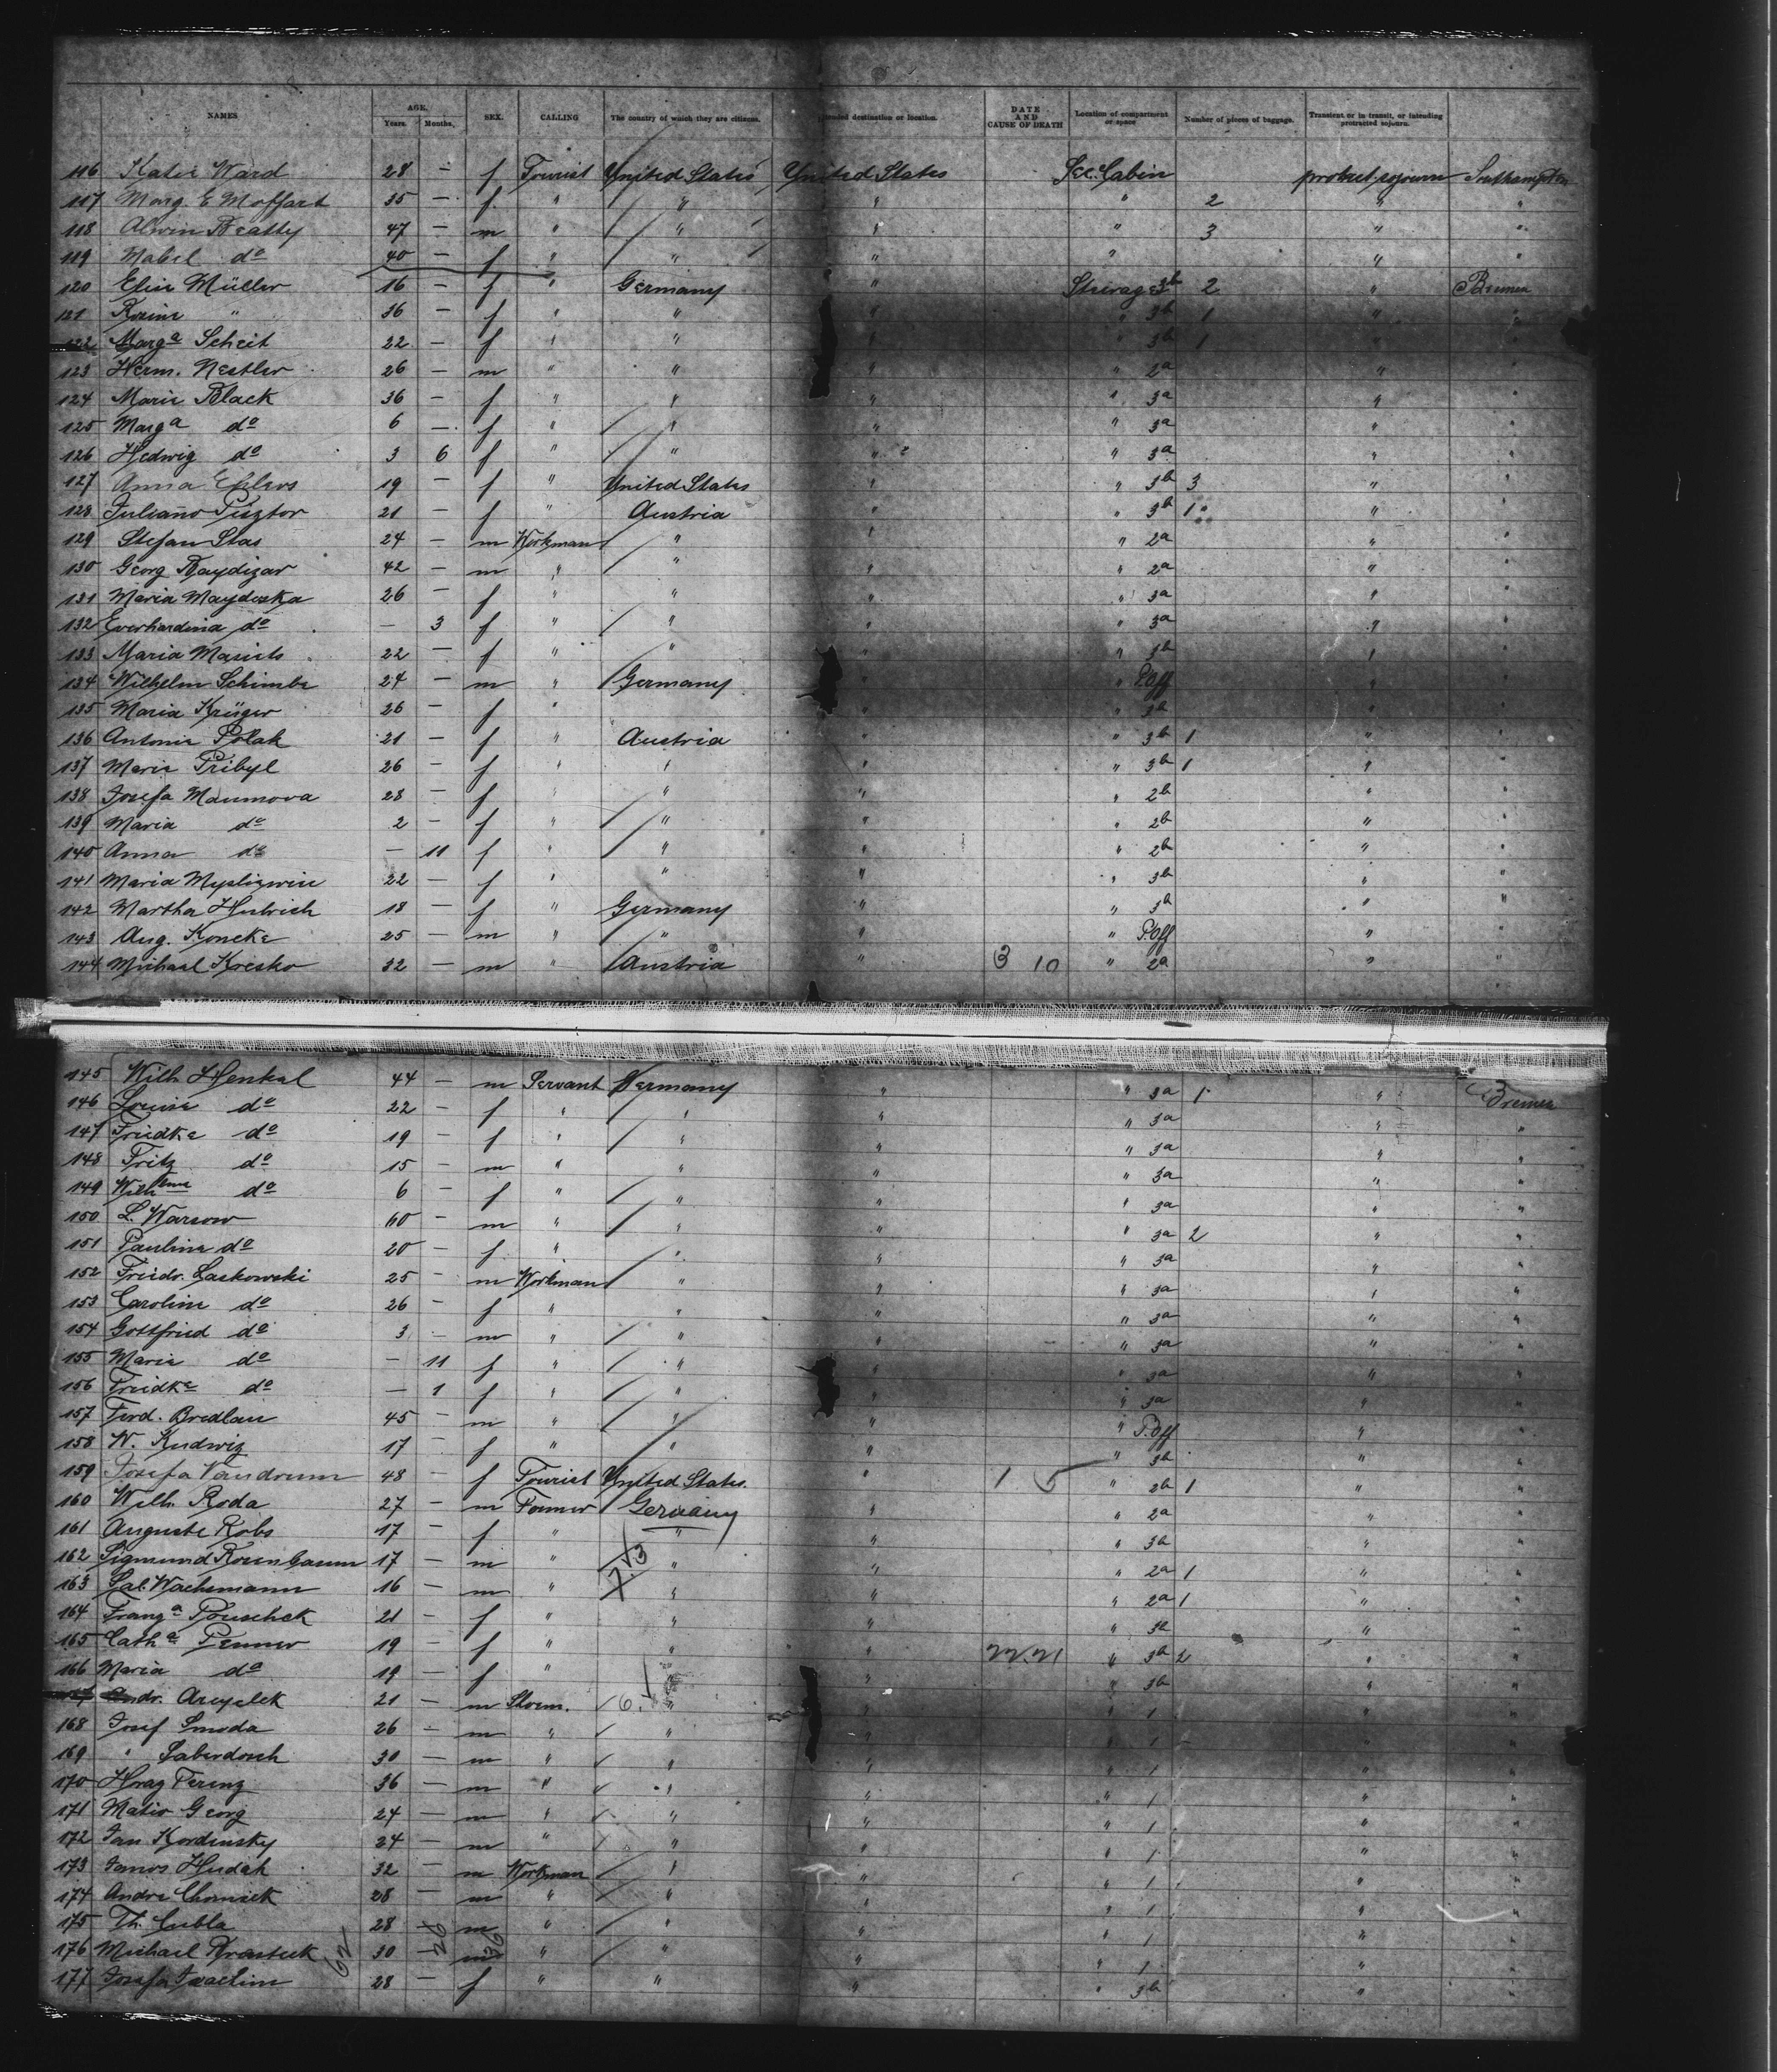 NAMES AGE. Years. Months. SEX. CALLING The country of which they are citizens. Intended destination or location. DATE AND CAUSE OF DEATH Location of compartment or space Number of pieces of baggage. Transient or in transit, or intending protracted sojourn.
116 Katie Ward 28 — f Tourist United States United States Sec. Cabin protract. sojourn Southampton
117 Marg. E Moffart 35 — f " " " " 2 " "
118 Alwin Beatty 47 — m " " " " 3 " "
119 Mabel do 40 — f " " " " " "
120 Elise Müller 16 — f " Germany " Steerage 3b 2 " Bremen
121 Rosine " 36 — f " " " " 3b 1 " "
122 Marga Scheit 22 — f " " " " 3b 1 " "
123 Herm. Nestler 26 — m " " " " 2a " "
124 Marie Black 36 — f " " " " 3a " "
125 Marga do 6 — f " " " " 3a " "
126 Hedwig do 3 6 f " " " " 3a " "
127 Anna Ehlers 19 — f " United States " " 3b 3 " "
128 Pisztor 21 — f " Austria " " 3b 1 " "
129 Stefan Stas 24 — m Workman " " " 2a " "
130 Georg 42 — m " " " " 2a " "
131 Maria 26 — f " " " " 3a " "
132 Everhardina do — 3 f " " " " 3a " "
133 Maria 22 — f " " " " 3b " "
134 Wilhelm 24 — m " Germany " " P.Off " "
135 Maria Krüger 26 — f " " " 3b " "
136 Antonie Polak 21 — f " Austria " " 3b 1 " "
137 Marie Pribyl 26 — f " " " " 3b 1 " "
138 Josefa Maumova 28 — f " " " " 2b " "
139 Maria do 2 — f " " " " 2b " "
140 Anna do — 11 f " " " " 2b " "
141 Maria 22 — f " " " " 3b " "
142 Martha 18 — f " Germany " " 3b " "
143 Aug. Koneke 25 — m " " " " P.Off " "
144 Michael Kresko 32 — m " Austria " 3 10 " 2a " "
145 Wilh. Henkel 44 — m Servant Germany " " 3a 1 " Bremen
146 Louise do 22 — f " " " " 3a " "
147 Friedke do 19 — f " " " " 3a " "
148 Fritz do 15 — m " " " " 3a " "
149 Wilhme do 6 — f " " " " 3a " "
150 L. Warsow 60 — m " " " " 3a 2 " "
151 Pauline do 20 — f " " " " 3a " "
152 Friedr. Laskowski 25 — m Workman " " " 3a " "
153 Caroline do 26 — f " " " " 3a " "
154 Gottfried do 3 — m " " " " 3a " "
155 Marie do — 11 f " " " " 3a " "
156 Friedke do — 1 f " " " " 3a " "
157 Ferd. Bredlau 45 — m " " " " P.Off " "
158 W. Kudwig 17 — f " " " " 3b " "
159 Josefa 48 — f Tourist United States. " 1 5 " 2b 1 " "
160 Wilh. Roda 27 — m Farmer Germany " " 2a " "
161 Auguste Robs 17 — f " " " " 3b " "
162 Sigmund Rosenbaum 17 — m " " " " 2a 1 " "
163 Sal. Wachsmann 16 — m " " " " 2a 1 " "
164 Franza 21 — f " " " " " "
165 Catha Penner 19 — f " " " 22.21 " 3b 2 " "
166 Maria do 19 — f " " " " 3b " "
Andr. 21 — m " " " 1 " "
168 Josef Smoda 26 — m " " " " 1 " "
169 " 30 — m " " " " 1 " "
170 36 — m " " " " 1 " "
171 Georg 24 — m " " " " 1 " "
172 Jan Kordinsky 24 — m " " " " 1 " "
173 Janos Hudak 32 — m Workman " " " 1 " "
174 Andre 28 — m " " " " 1 " "
175 Th. Cubla 28 — m " " " " 1 " "
176 Michael 30 — m " " " " 1 " "
177 Josefa Joachim 28 — f " " " " 3b " "